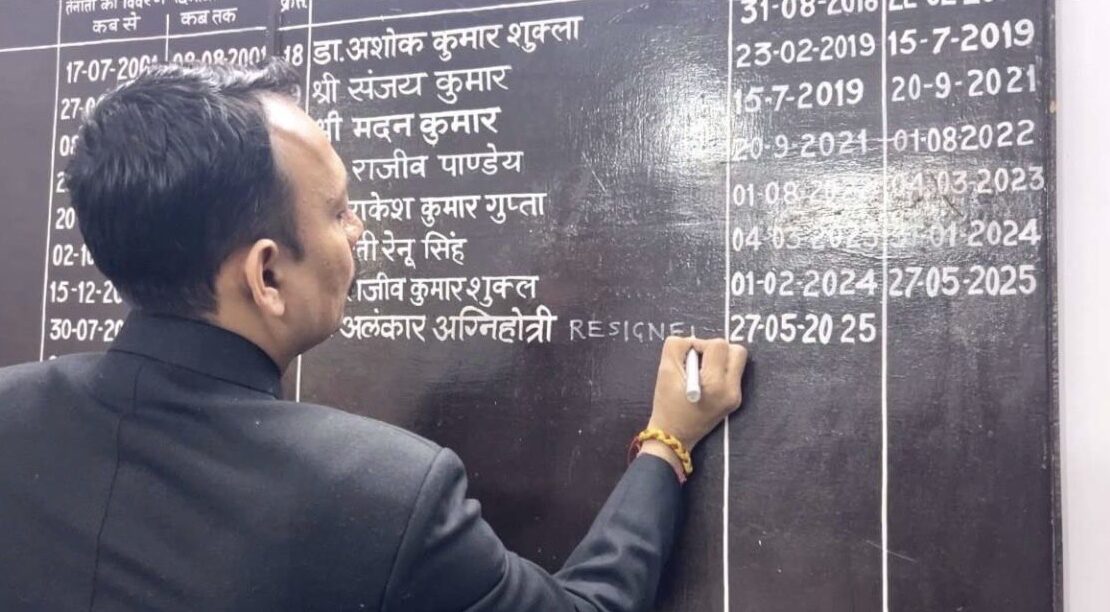 तैनाती का विवरण
कब से कब तक
31-08-2018
17-07-2001 08-08-2001 18 डा. अशोक कुमार शुक्ला 23-02-2019 15-7-2019
श्री संजय कुमार 15-7-2019 20-9-2021
मदन कुमार 20-9-2021 01-08-2022
राजीव पाण्डेय 01-08-2022 04-03-2023
20 राकेश कुमार गुप्ता 04-03-2023 31-01-2024
रेनू सिंह 01-02-2024 27-05-2025
15-12-20 राजीव कुमार शुक्ल 27-05-2025
30-07-20 अलंकार अग्निहोत्री RESIGNE